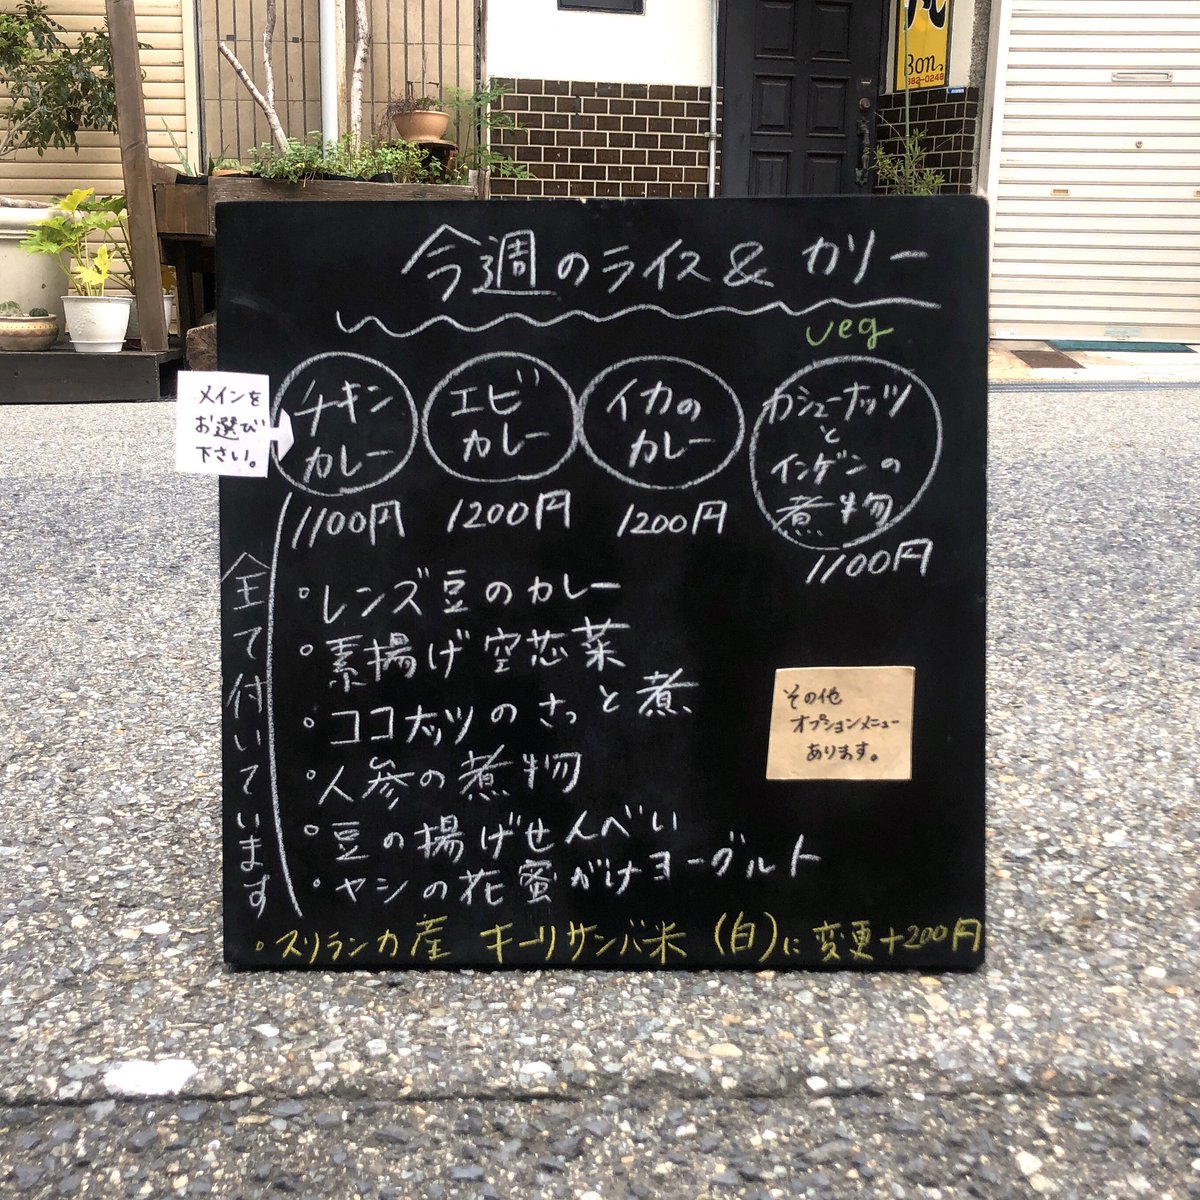 Bon.
382-0248
今週のライス&カリー
veg
メインを
お選び
下さい。
チキン
カレー
1100円
エビ
カレー
1200円
イカの
カレー
1200円
カシューナッツ
と
インゲンの
煮物
1100円
全て付いています
・レンズ豆のカレー
・素揚げ空芯菜
・ココナッツのさっと煮
・人参の煮物
・豆の揚げせんべい
・ヤシの花蜜がけヨーグルト
その他
オプションメニュー
あります。
・スリランカ産 キーリサンバ米(白)に変更+200円